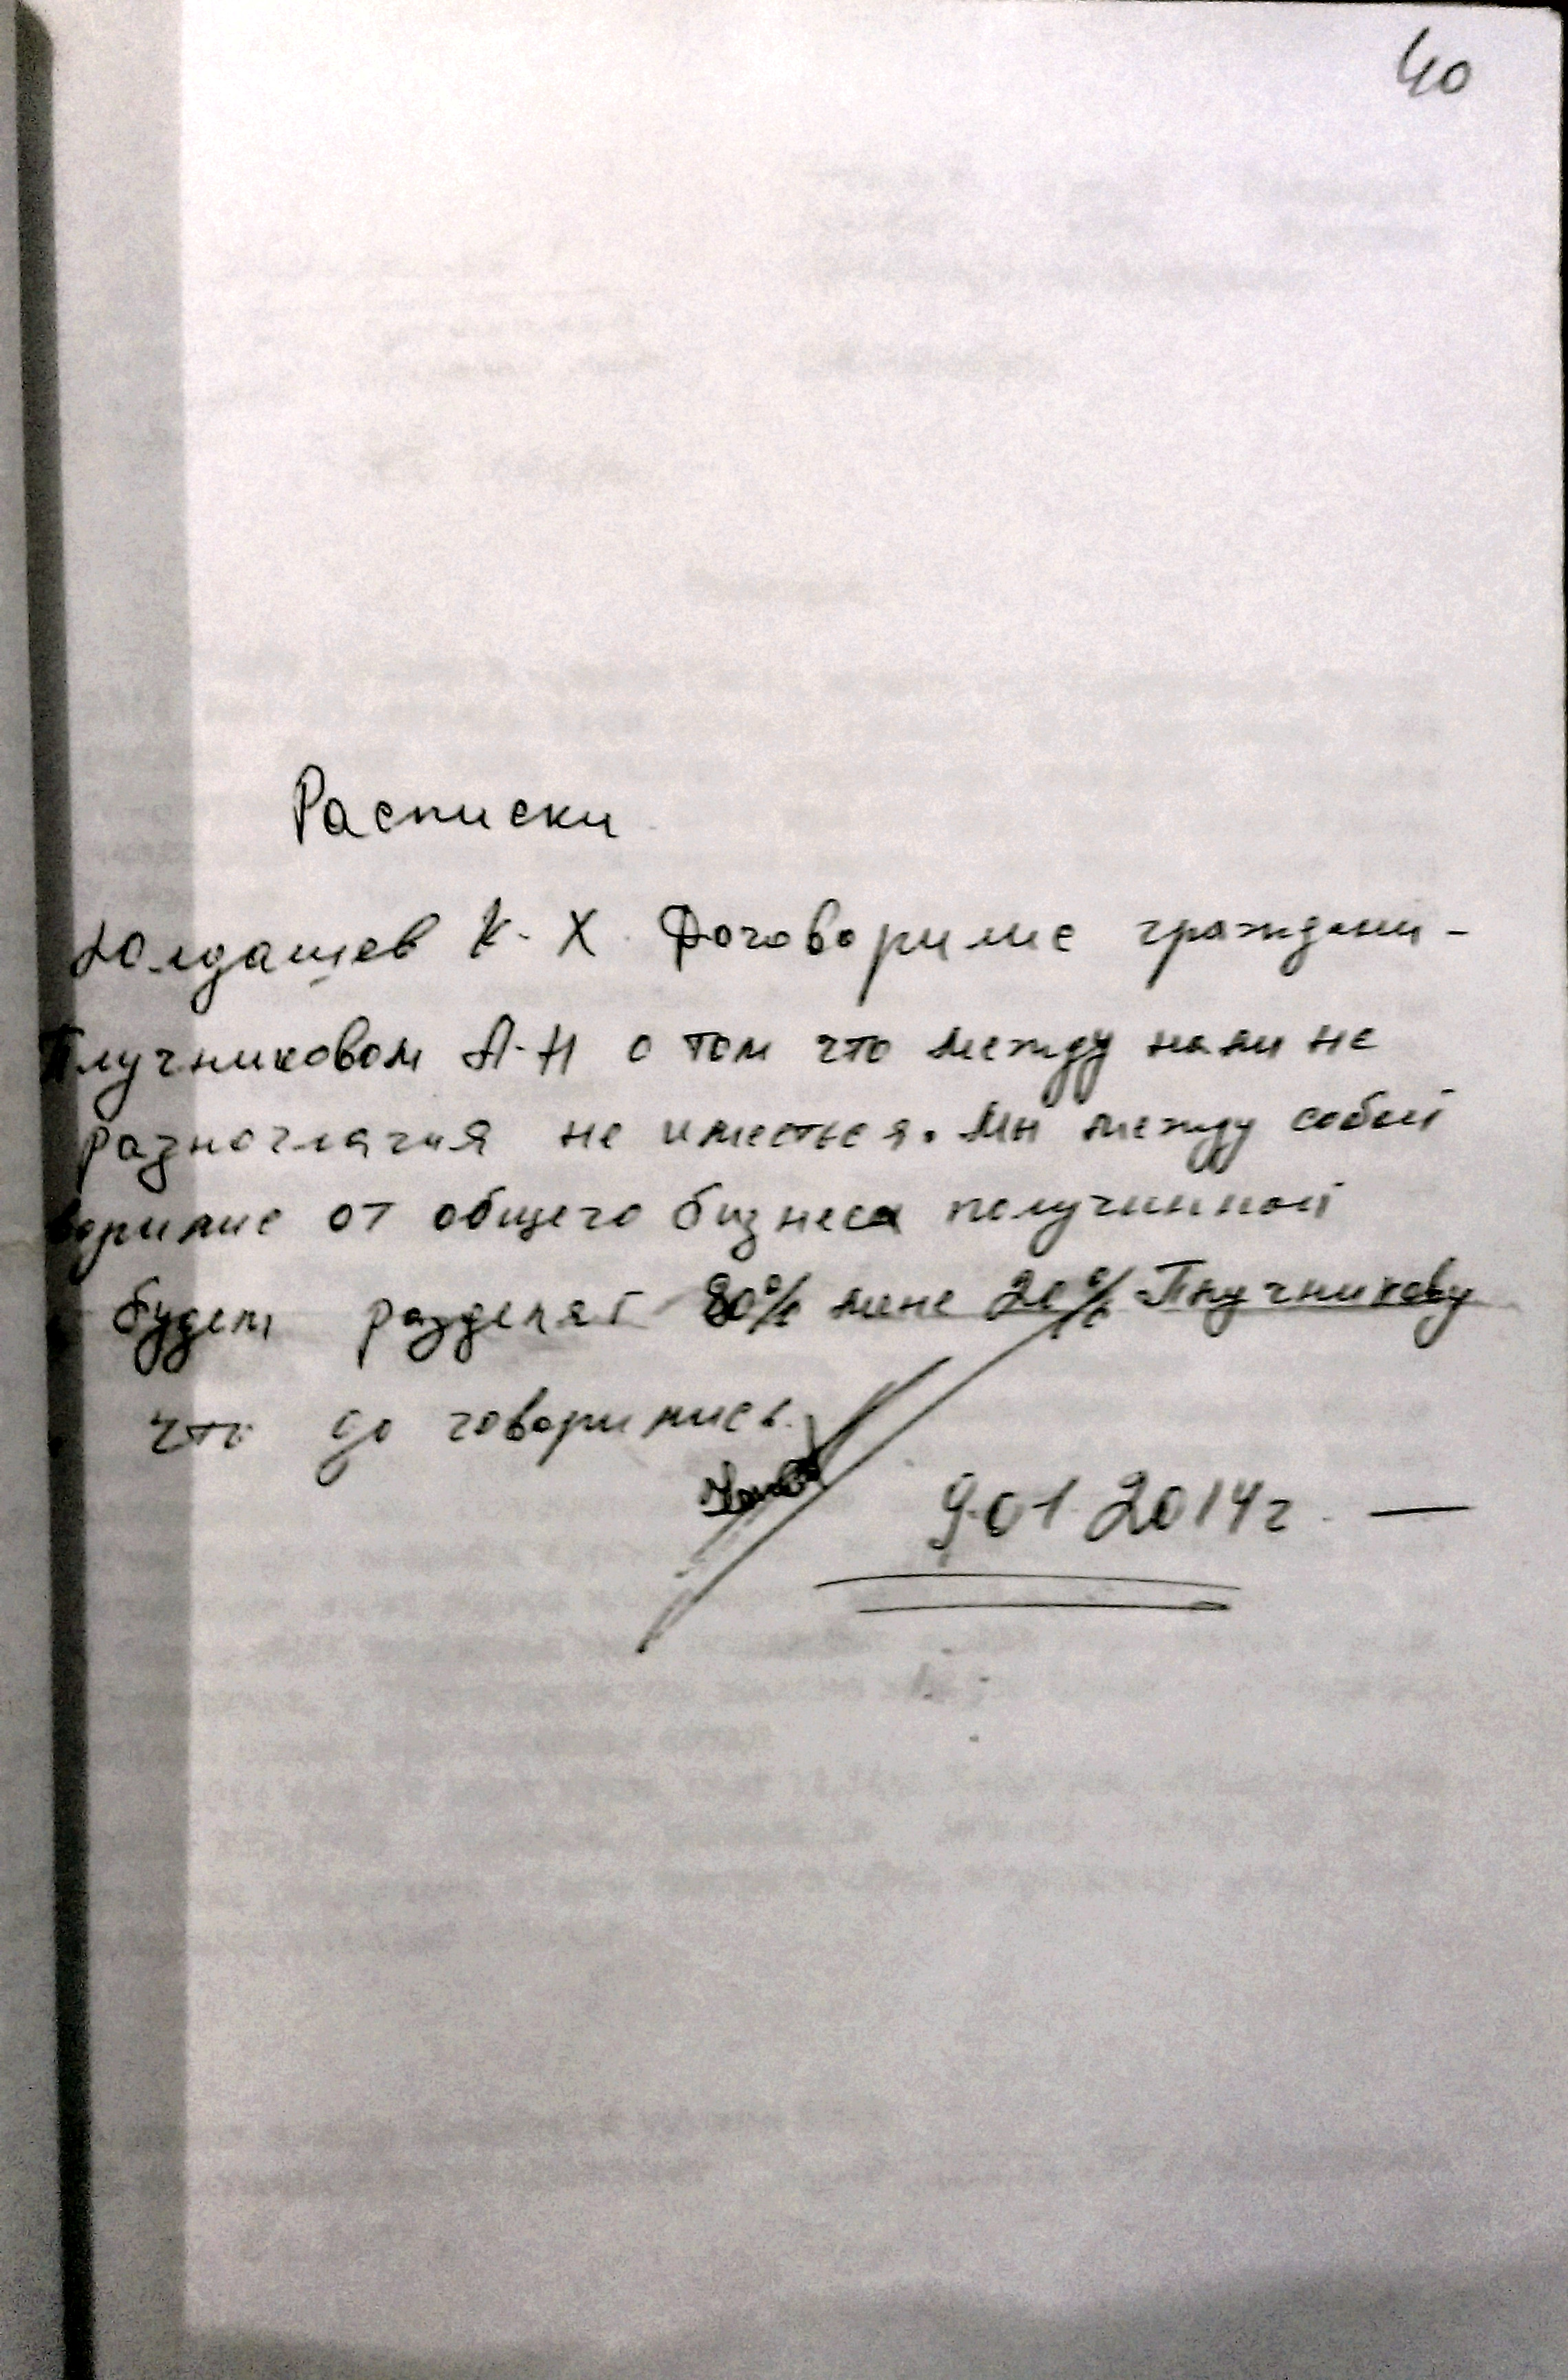 40
Расписки
Юлдашев К. Х. Договорилис граждани-
Плучниковом А.Н о том что между нами не
разноглагия не иместься. Мы между собой
ворилис от общего бизнеса получинной
будет разделят 80% мене 20% Плучникову
что до говорились.
9.01.2014г. —